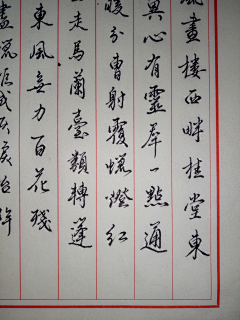 風畫樓西畔桂堂東
翼心有靈犀一點通
暖分曹射覆蠟燈紅
走馬蘭臺類轉蓬
東風無力百花殘
盡